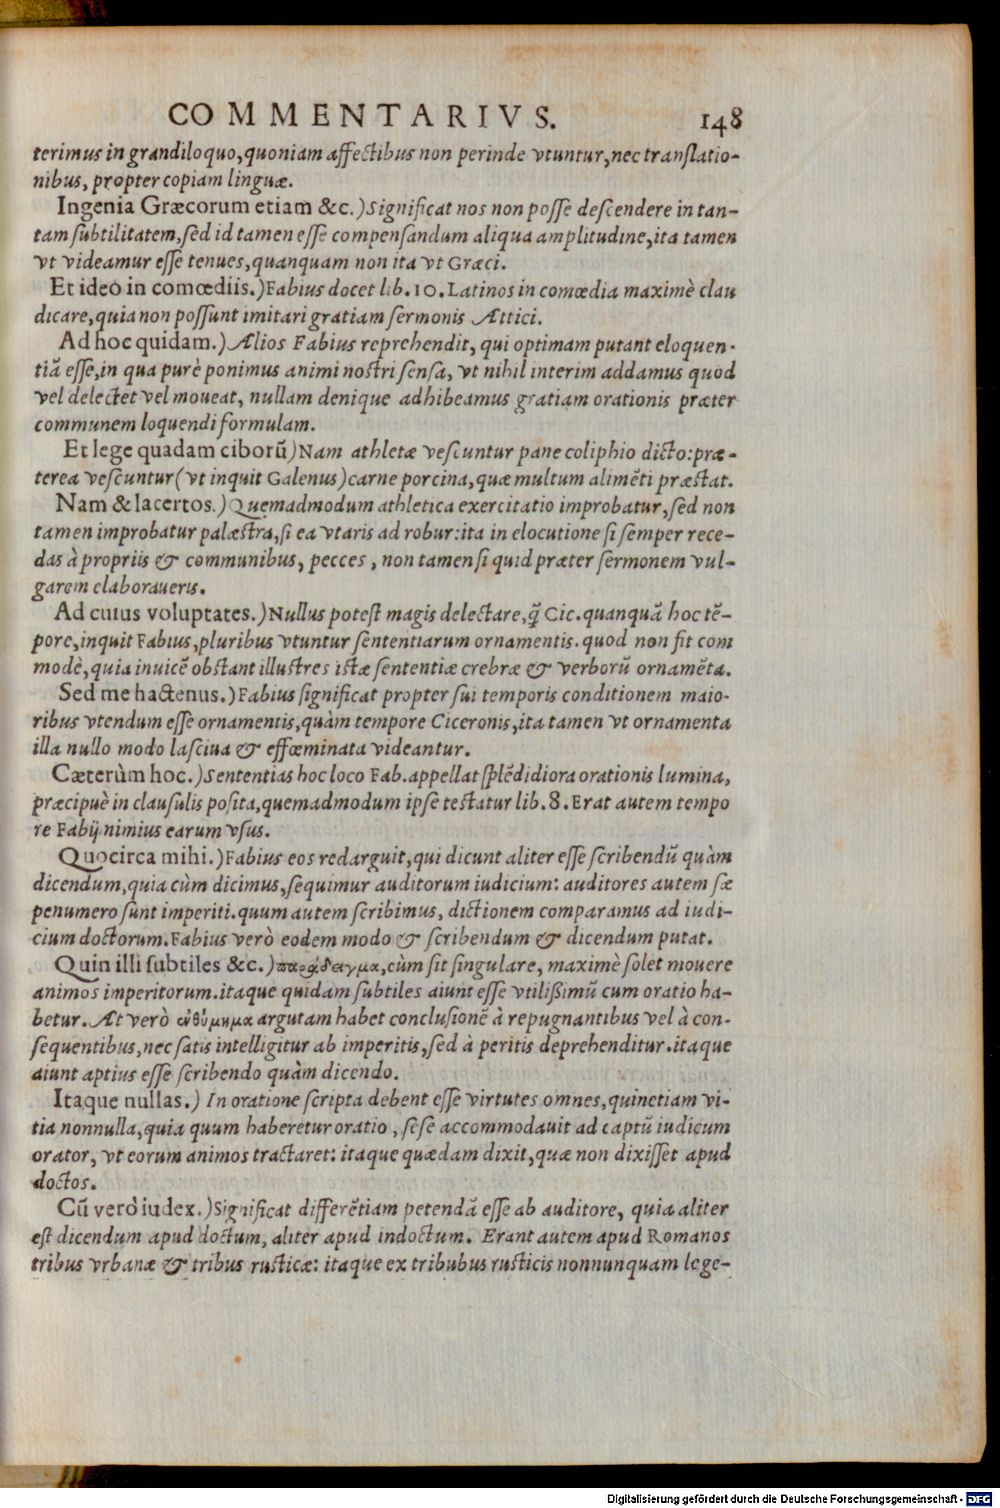 COMMENTARIVS. 148
terimus in grandiloquo, quoniam affectibus non perinde vtuntur, nec translatio-
nibus, propter copiam linguæ.
Ingenia Græcorum etiam &c.) Significat nos non posse descendere in tan-
tam subtilitatem, sed id tamen esse compensandum aliqua amplitudine, ita tamen
vt videamur esse tenues, quanquam non ita vt Græci.
Et ideo in comœdiis.) Fabius docet lib. 10. Latinos in comœdia maximè clau
dicare, quia non possunt imitari gratiam sermonis Attici.
Ad hoc quidam.) Alios Fabius reprehendit, qui optimam putant eloquen-
tiā esse, in qua purè ponimus animi nostri sensa, vt nihil interim addamus quod
vel delectet vel moueat, nullam denique adhibeamus gratiam orationis præter
communem loquendi formulam.
Et lege quadam ciborū) Nam athletæ vescuntur pane coliphio dicto: præ-
terea vescuntur (vt inquit Galenus) carne porcina, quæ multum alimēti præstat.
Nam & lacertos.) Quemadmodum athletica exercitatio improbatur, sed non
tamen improbatur palæstra, si ea vtaris ad robur: ita in elocutione si semper rece-
das à propriis & communibus, pecces, non tamen si quid præter sermonem vul-
garem elaboraueris.
Ad cuius voluptates.) Nullus potest magis delectare, q̄ Cic. quanquā hoc tē-
pore, inquit Fabius, pluribus vtuntur sententiarum ornamentis. quod non fit com
modè, quia inuicē obstant illustres istæ sententiæ crebræ & verborū ornamēta.
Sed me hactenus.) Fabius significat propter sui temporis conditionem maio-
ribus vtendum esse ornamentis, quàm tempore Ciceronis, ita tamen vt ornamenta
illa nullo modo lasciua & effœminata videantur.
Cæterùm hoc.) Sententias hoc loco Fab. appellat splēdidiora orationis lumina,
præcipuè in clausulis posita, quemadmodum ipse testatur lib. 8. Erat autem tempo
re Fabij nimius earum vsus.
Quocirca mihi.) Fabius eos redarguit, qui dicunt aliter esse scribendū quàm
dicendum, quia cùm dicimus, sequimur auditorum iudicium: auditores autem sæ
penumero sunt imperiti. quum autem scribimus, dictionem comparamus ad iudi-
cium doctorum. Fabius verò eodem modo & scribendum & dicendum putat.
Quin illi subtiles &c.) παράδειγμα, cùm sit singulare, maximè solet mouere
animos imperitorum. itaque quidam subtiles aiunt esse vtilißimū cum oratio ha-
betur. At verò ἐνθύμημα argutam habet conclusionē à repugnantibus vel à con-
sequentibus, nec satis intelligitur ab imperitis, sed à peritis deprehenditur. itaque
aiunt aptius esse scribendo quàm dicendo.
Itaque nullas.) In oratione scripta debent esse virtutes omnes, quinetiam vi-
tia nonnulla, quia quum haberetur oratio, sese accommodauit ad captū iudicum
orator, vt eorum animos tractaret: itaque quædam dixit, quæ non dixisset apud
doctos.
Cū verò iudex.) Significat differētiam petendā esse ab auditore, quia aliter
est dicendum apud doctum, aliter apud indoctum. Erant autem apud Romanos
tribus vrbanæ & tribus rusticæ: itaque ex tribubus rusticis nonnunquam lege-
Digitalisierung gefördert durch die Deutsche Forschungsgemeinschaft - DFG